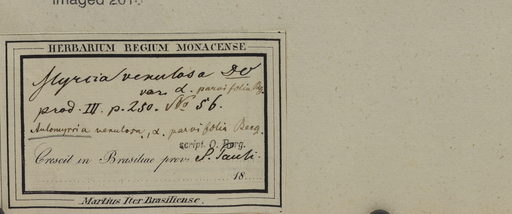 Imaged 2015
HERBARIUM REGIUM MONACENSE
Myrcia venulosa DC
var. α. parvifolia Bg.
prod. III. p. 250. No 56.
Aulomyrcia venulosa, α. parvifolia Berg.
script. O. Berg.
Crescit in Brasiliae prov. S. Pauli.
18
Martius Iter Brasiliense.